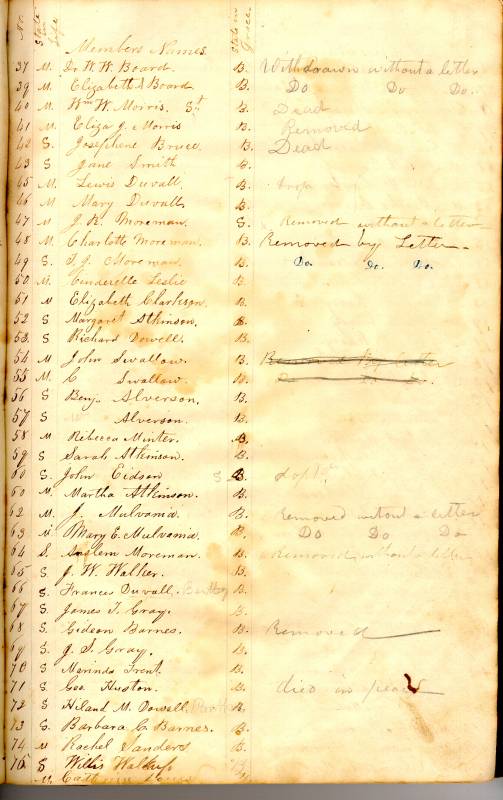 No. State in Life Members Names State in Grace
37 M. Dr W. W. Board. B. Withdrawn without a letter
39 M. Elizabeth S Board B. Do Do Do.
40 M. Wm W. Morris. B. Dead
41 M. Eliza J. Morris B. Removed
42 S. Josephene Bruce B. Dead
43 S Jane Smith B.
45 M. Lewis Duvall B.
46 M. Mary Duvall B.
47 M J. R. Moreman. S. Removed without a letter
48 M. Charlotte Moreman. B. Removed by Letter.
49 S. T. J. Moreman. B. Do. Do. Do.
50 M. Cinderelle Leslie B.
51 M Elizabeth Clarkson. B.
52 S Margaret Atkinson. B.
53 S. Richard Dowell. B.
54 M John Swallow. B. Removed By Letter
55 M. C Swallow. B.
56 S Benj. Alverson. B.
57 S Alverson. B.
58 M Rebecca Minter. B.
59 S Sarah Atkinson. B.
60 S. John Eidson S B.
60 M. Martha Atkinson. B.
62 M J. Mulvania. B. Removed without a letter
63 M Mary E. Mulvania. B. Do Do Do
64 S. Anslem Moreman. B. Removed without a letter
65 S J. W. Walker. B.
66 S. Frances Duvall. B.
67 S James T. Gray. B.
68 S. Gideon Barnes. B. Removed
69 S. J. S. Gray. B.
70 S Merinda Trent. B.
71 S Geo Huston. B. died in peace
72 S Hiland M. Dowell B.
73 S. Barbara C. Barnes. B.
74 M Rachel Sanders B.
75 S Willis Walkup B.
M.